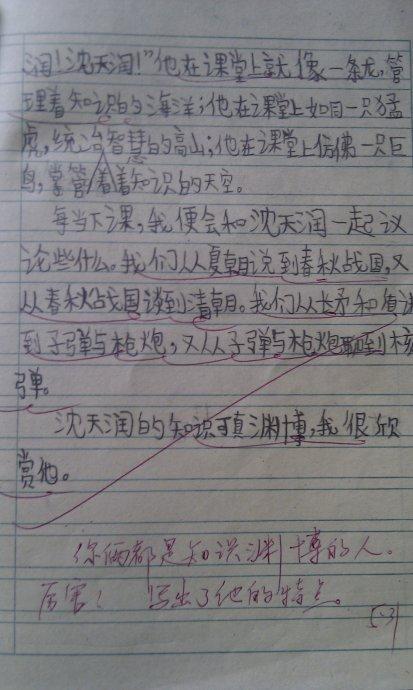 润！沈天润！”他在课堂上就像一条龙，管
理着知识的海洋；他在课堂上如同一只猛
虎，统治智慧的高山；他在课堂上仿佛一只巨
鸟，掌管着知识的天空。
每当下课，我便会和沈天润一起议
论些什么。我们从夏朝说到春秋战国，又
从春秋战国谈到清朝。我们从长矛和盾
到子弹与枪炮，又从子弹与枪炮聊到核
弹。
沈天润的知识可真渊博，我很欣
赏他。
你俩都是知识渊博的人。
厉害！ 写出了他的特点。